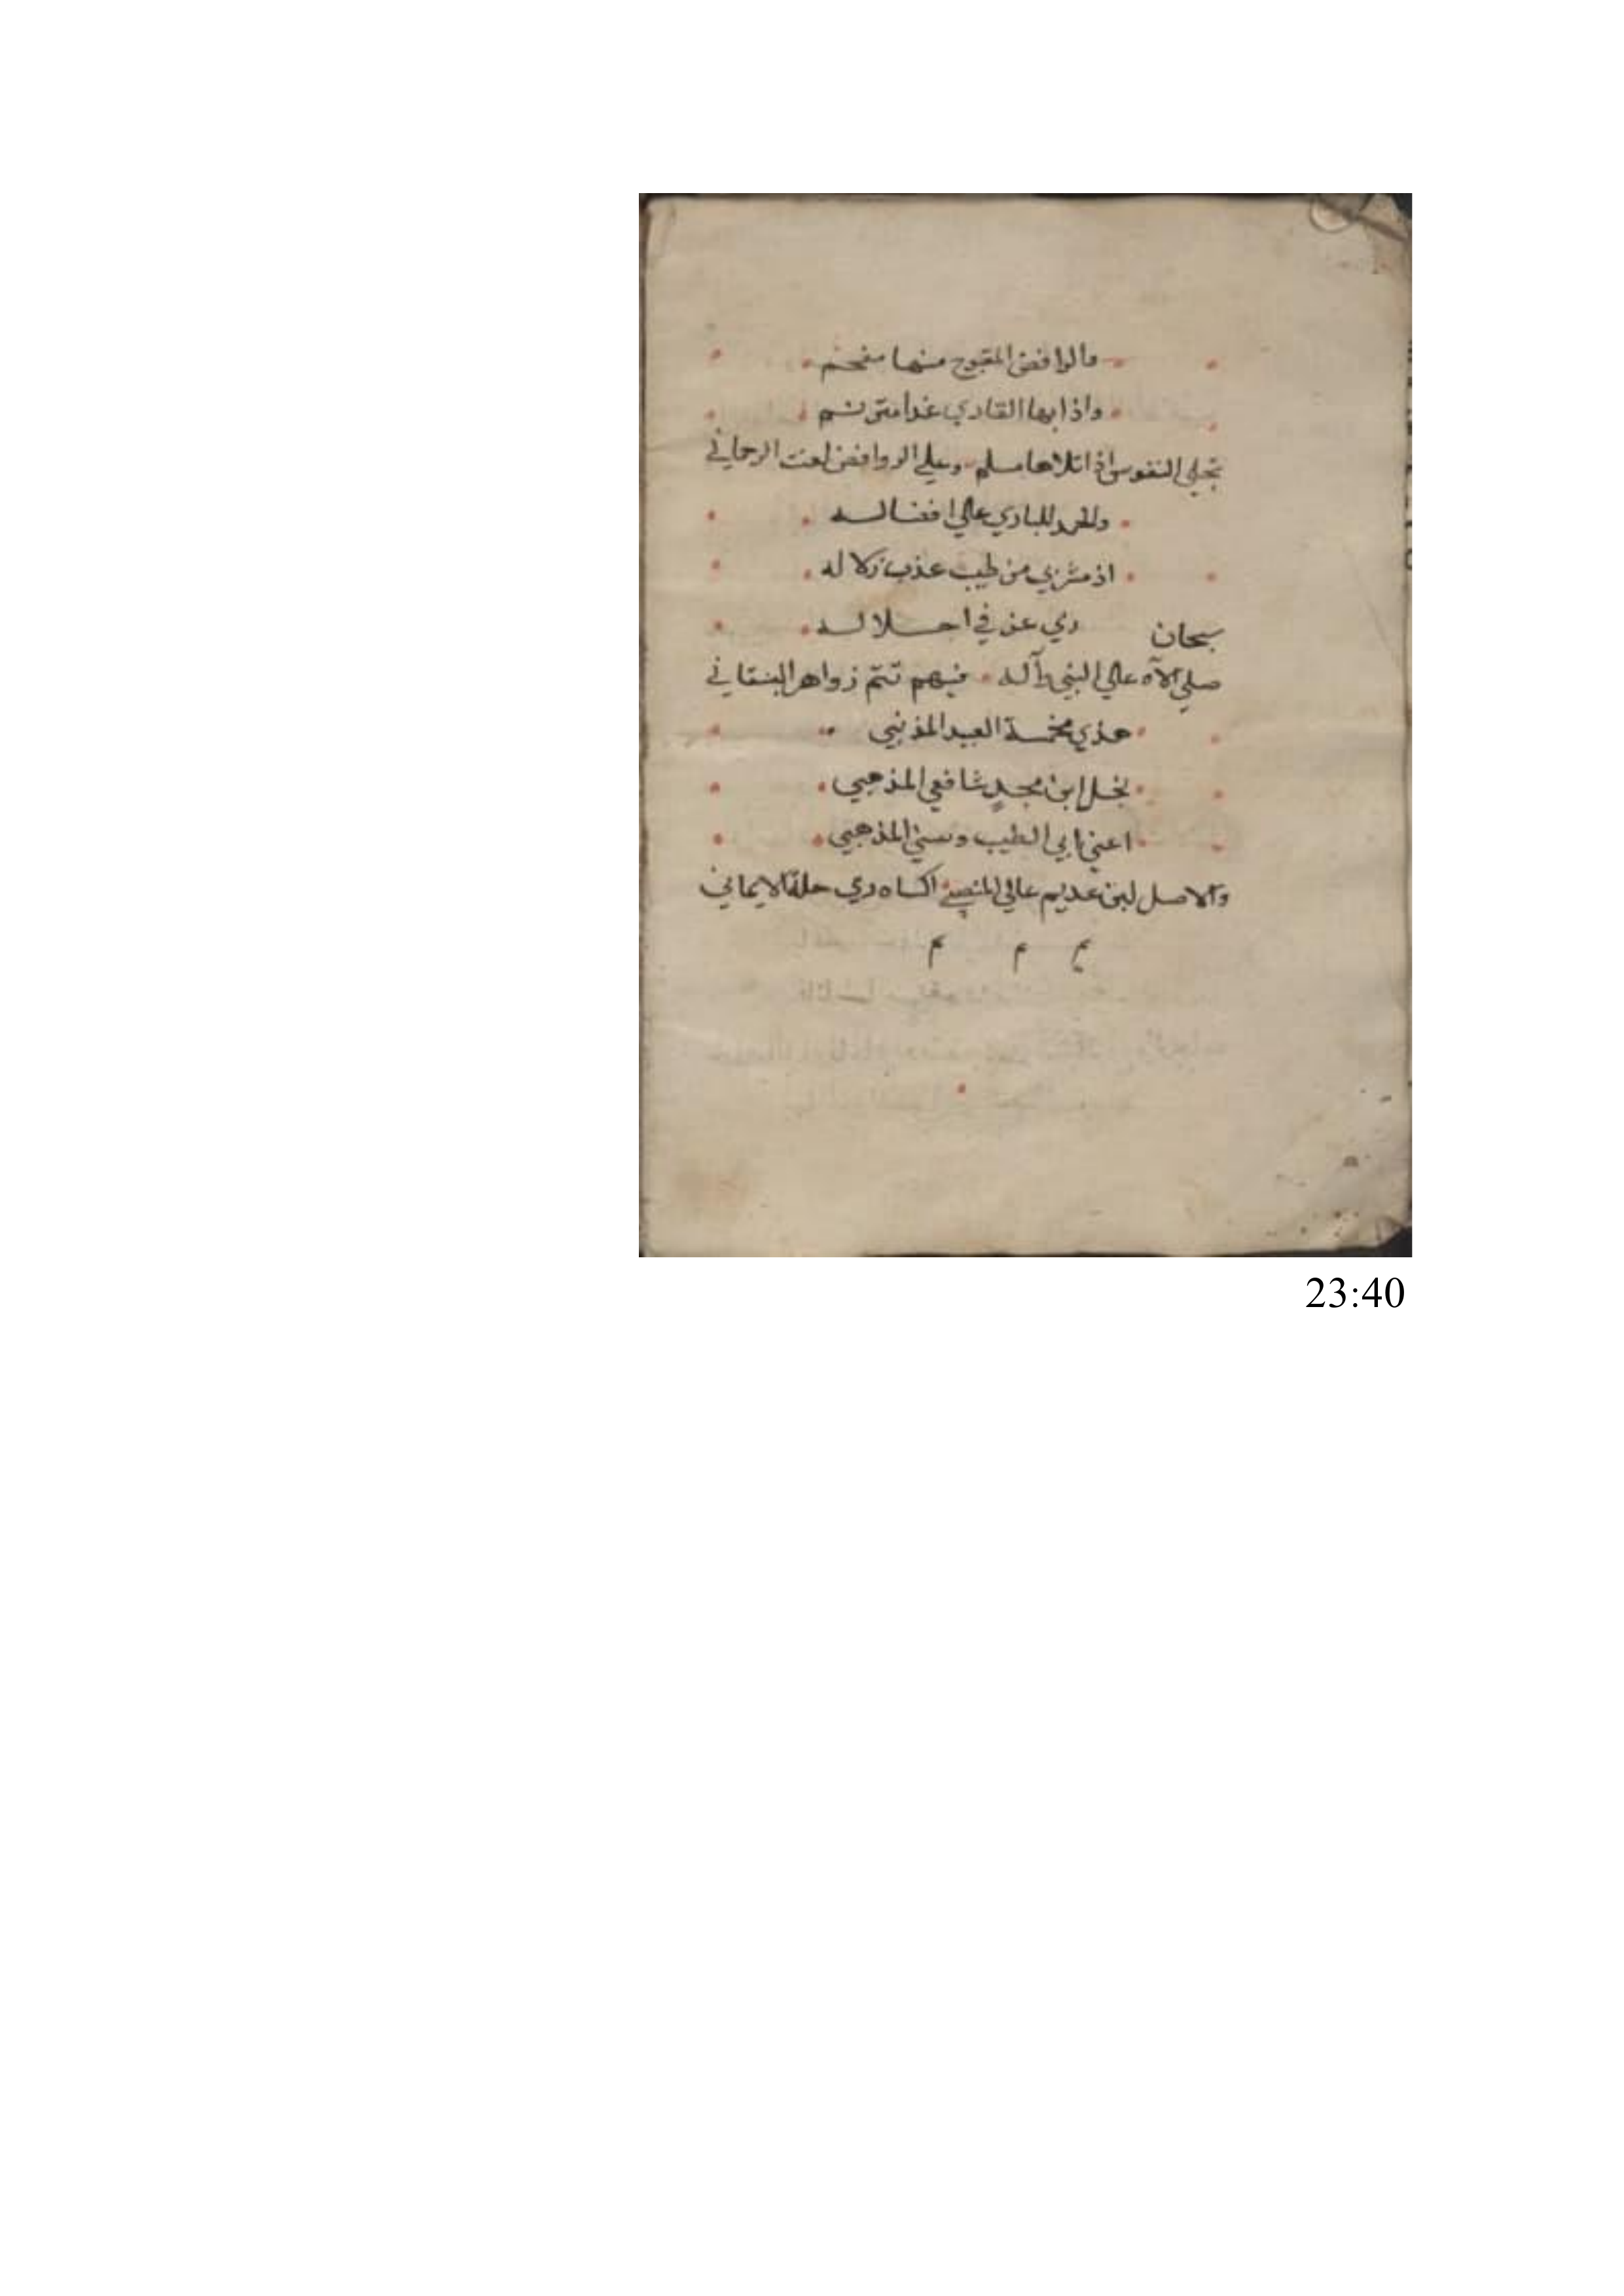 والوافض المقبوح منها مفحم
واذا بها القادي غدا مترنم
تجلي النفوس اذا تلاها مسلم وعلي الروافض لعنت الرحماني
والحمد للباري عالي افضاله
اذ مشربي من طيب عذب زلاله
سبحان ربي عز في اجلاله
صلي الآه عالي النبي وآله فيهم تتم زواهر البنقاني
هذي مخمسة العبد المذنبي
نجل ابن مجدٍ شافعي المذهبي
اعني ابي الطيب وسني المذهبي
والاصل لبن عديم عالي المنصب اكساه ربي حلة الايماني
م م م
23:40